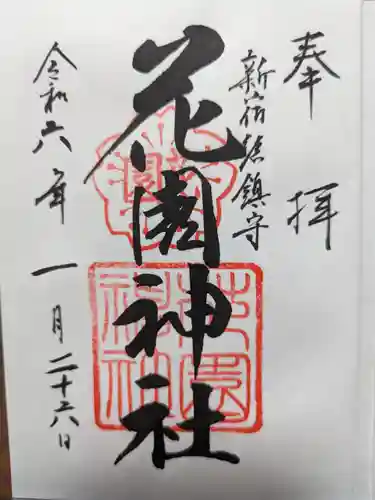 奉拝
新宿総鎮守
花園神社
令和六年一月二十六日
花園
神社